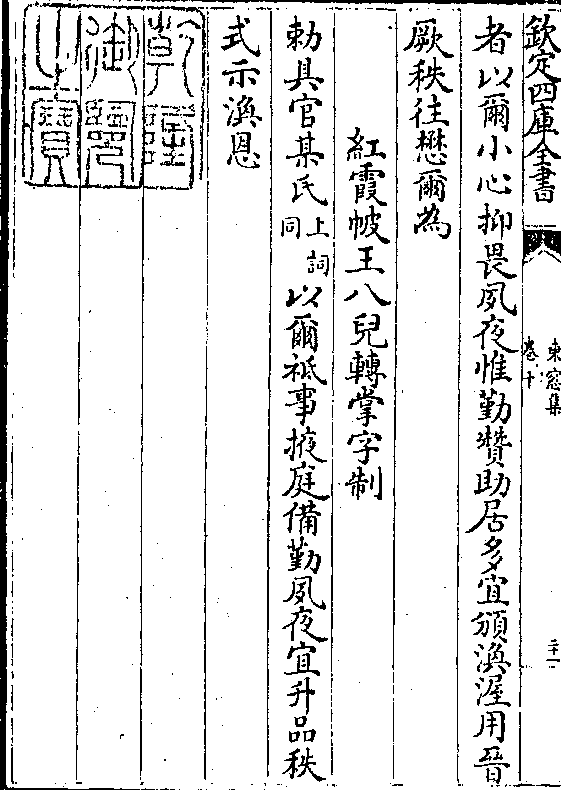 欽定四庫全書
東窓集
卷十
二十一
者以爾小心抑畏夙夜惟勤贊助居多宜頒渙渥用晉
厥秩往懋爾為
紅霞帔王八兒轉掌字制
勅具官某氏上詞同以爾祗事掖庭備勤夙夜宜升品秩
式示渙恩
乾隆御覽之寶